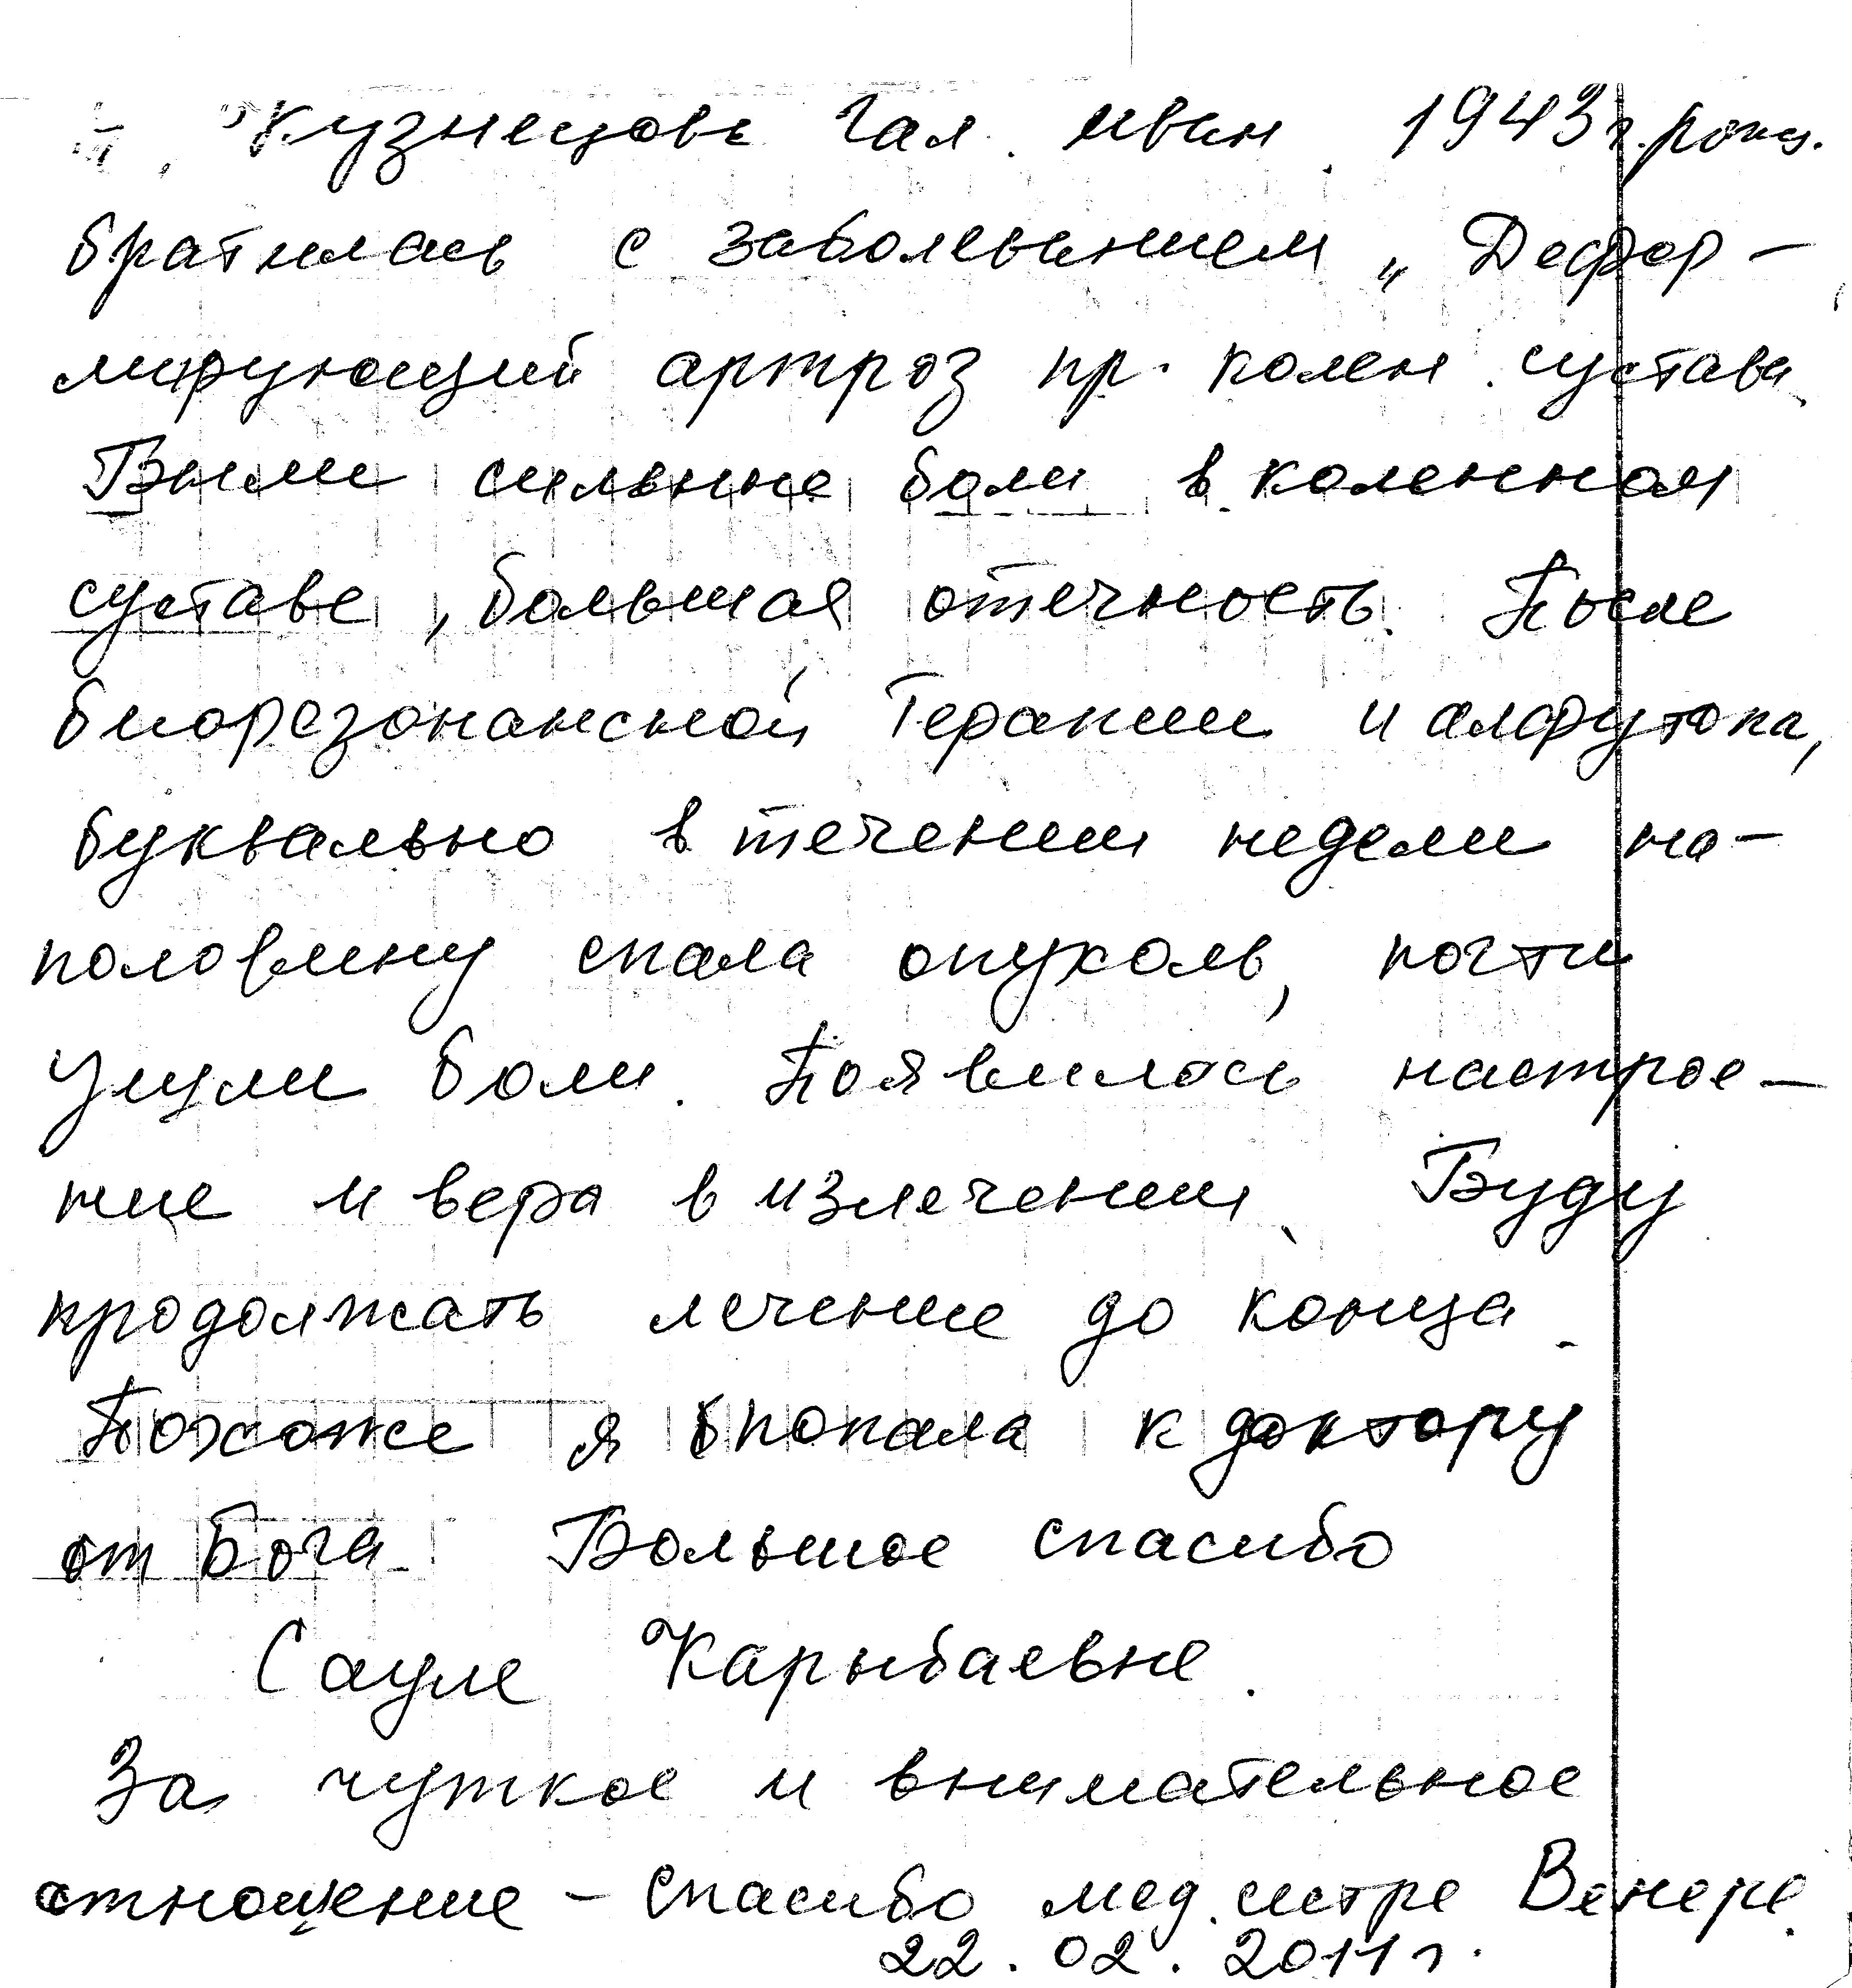 Кузнецова Гал. Иван. 1943 г. рожд.
братилась с заболеванием „Дефор-
мирующий артроз пр. колен. сустава
Были сильные боли в коленном
суставе, большая отечность. После
биорезонансной терапии и алфутопа,
буквально в течении недели на-
половину спала опухоль, почти
ушли боли. Появилось настрое-
ние и вера в излечении. Буду
продолжать лечение до конца.
Похоже я попала к доктору
от Бога. Большое спасибо
Сауле Карыбаевне.
За чуткое и внимательное
отношение - спасибо мед. сестре Венере.
22.02.2011 г.